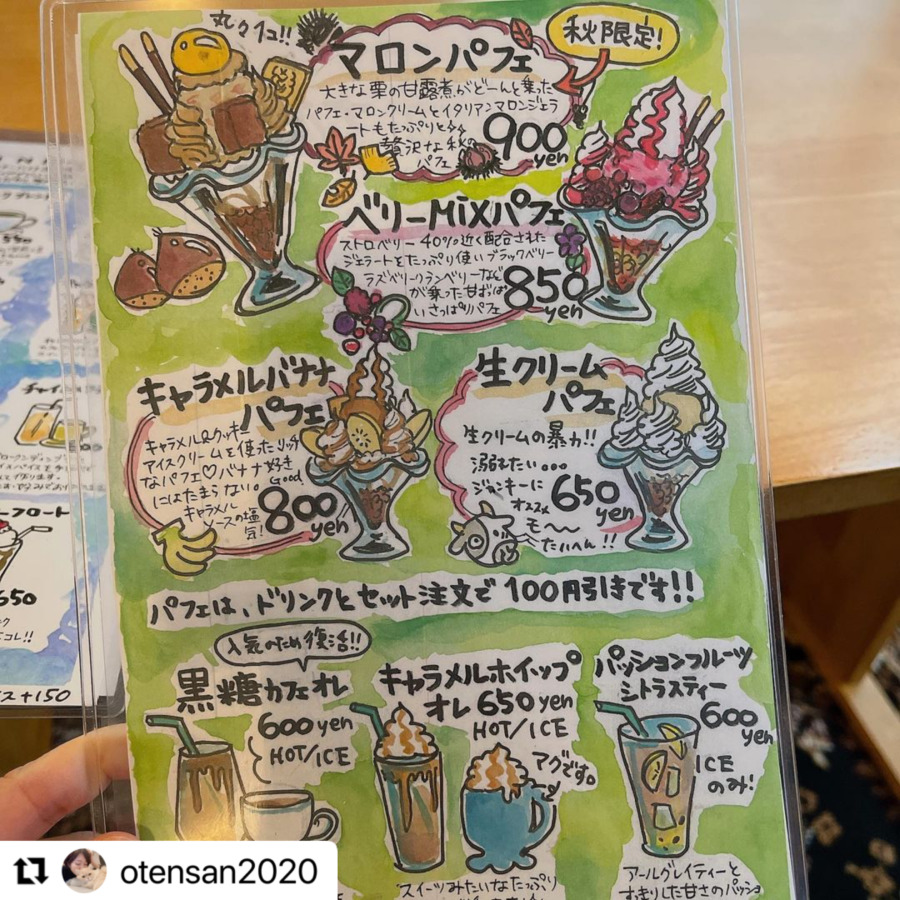 丸々1コ!!
秋限定!
マロンパフェ
大きな栗の甘露煮がどーんと乗った
パフェ・マロンクリームとイタリアンマロンジェラ
ートもたっぷりと
贅沢な秋の
パフェ
900
yen
ベリーMiXパフェ
ストロベリー40%近く配合された
ジェラートをたっぷり使いブラックベリー
ラズベリークランベリーなど
が乗った甘ずっぱ
いさっぱりパフェ
850
yen
キャラメルバナナ
パフェ
キャラメル&クッキー
アイスクリームを使ったリッチ
なパフェ♡バナナ好き
にはたまらない。
Good
キャラメル
ソースの塩
気!
800
yen
生クリーム
パフェ
生クリームの暴力!!
溺れたい...
ジャンキーに
オススメ
モ〜〜
たいへん!!
650
yen
パフェは、ドリンクとセット注文で100円引きです!!
人気のため復活!!
黒糖カフェオレ
600 yen
HOT/ICE
キャラメルホイップ
オレ 650 yen
HOT/ICE
アグです。
パッションフルーツ
シトラスティー
600
yen
ICE
のみ!
スイーツみたいなたっぷり
アールグレイティーと
すっきりした甘さのパッショ
チャイ
フロート
650
コレ!!
+150
otensan2020